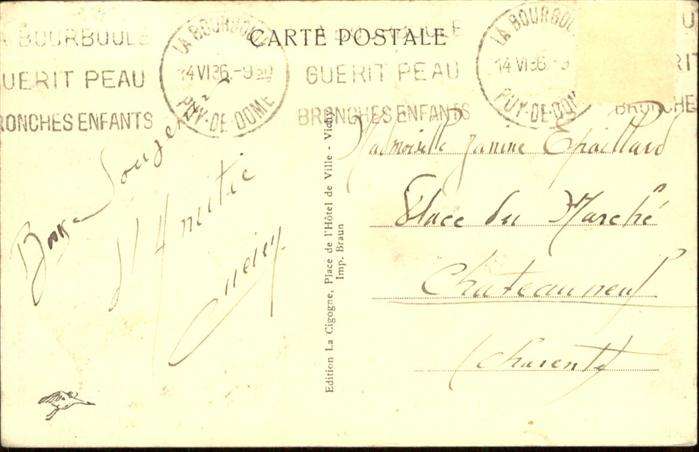 CARTE POSTALE
LA BOURBOULE
GUERIT PEAU
BRONCHES ENFANTS
LA BOURBOULE
14 VI 36
PUY-DE-DOME
GUERIT PEAU
BRONCHES ENFANTS
LA BOURBOULE
14 VI 36
PUY-DE-DOME
BRONCHES
Bon Souvenir
d'Amitié
Edition La Cigogne, Place de l'Hôtel de Ville - Vichy
Imp. Braun
Mademoiselle Janine Epaillard
Place du Marché
Chateauneuf
(Charente)